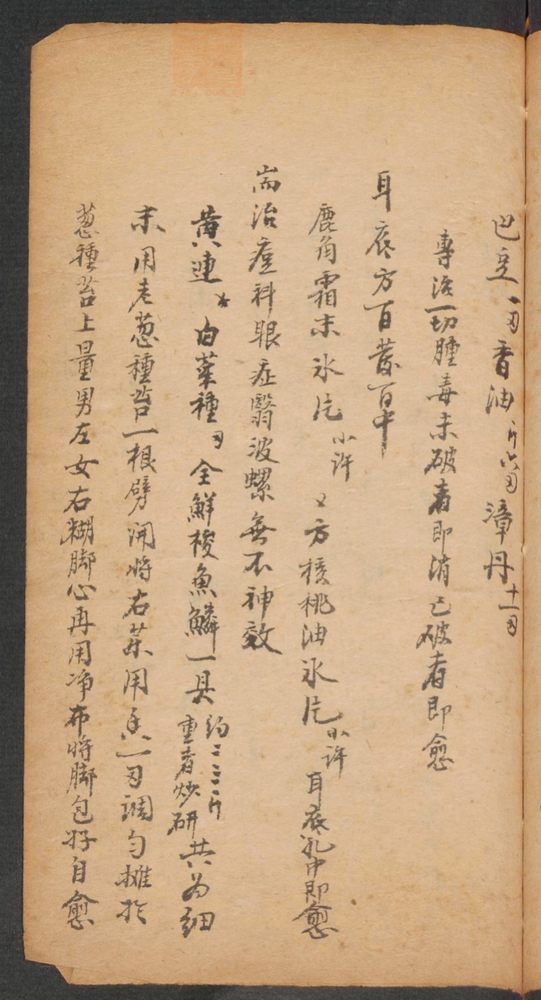 巴豆一两香油斤六两漳丹十一两
專治一切腫毒未破者即消已破者即愈
耳底方百發百中
鹿角霜末氷片小許 又方核桃油氷片小許 耳底乳中即愈
耑治痘科眼症翳波螺無不神效
黄連 白菜種 全鮮梭魚鱗一具約二三斤重者炒研共为細
末用老葱種苔一根劈開将右葯用 一 調勻摊於
葱種苔上量男左女右糊脚心再用净布将脚包好自愈